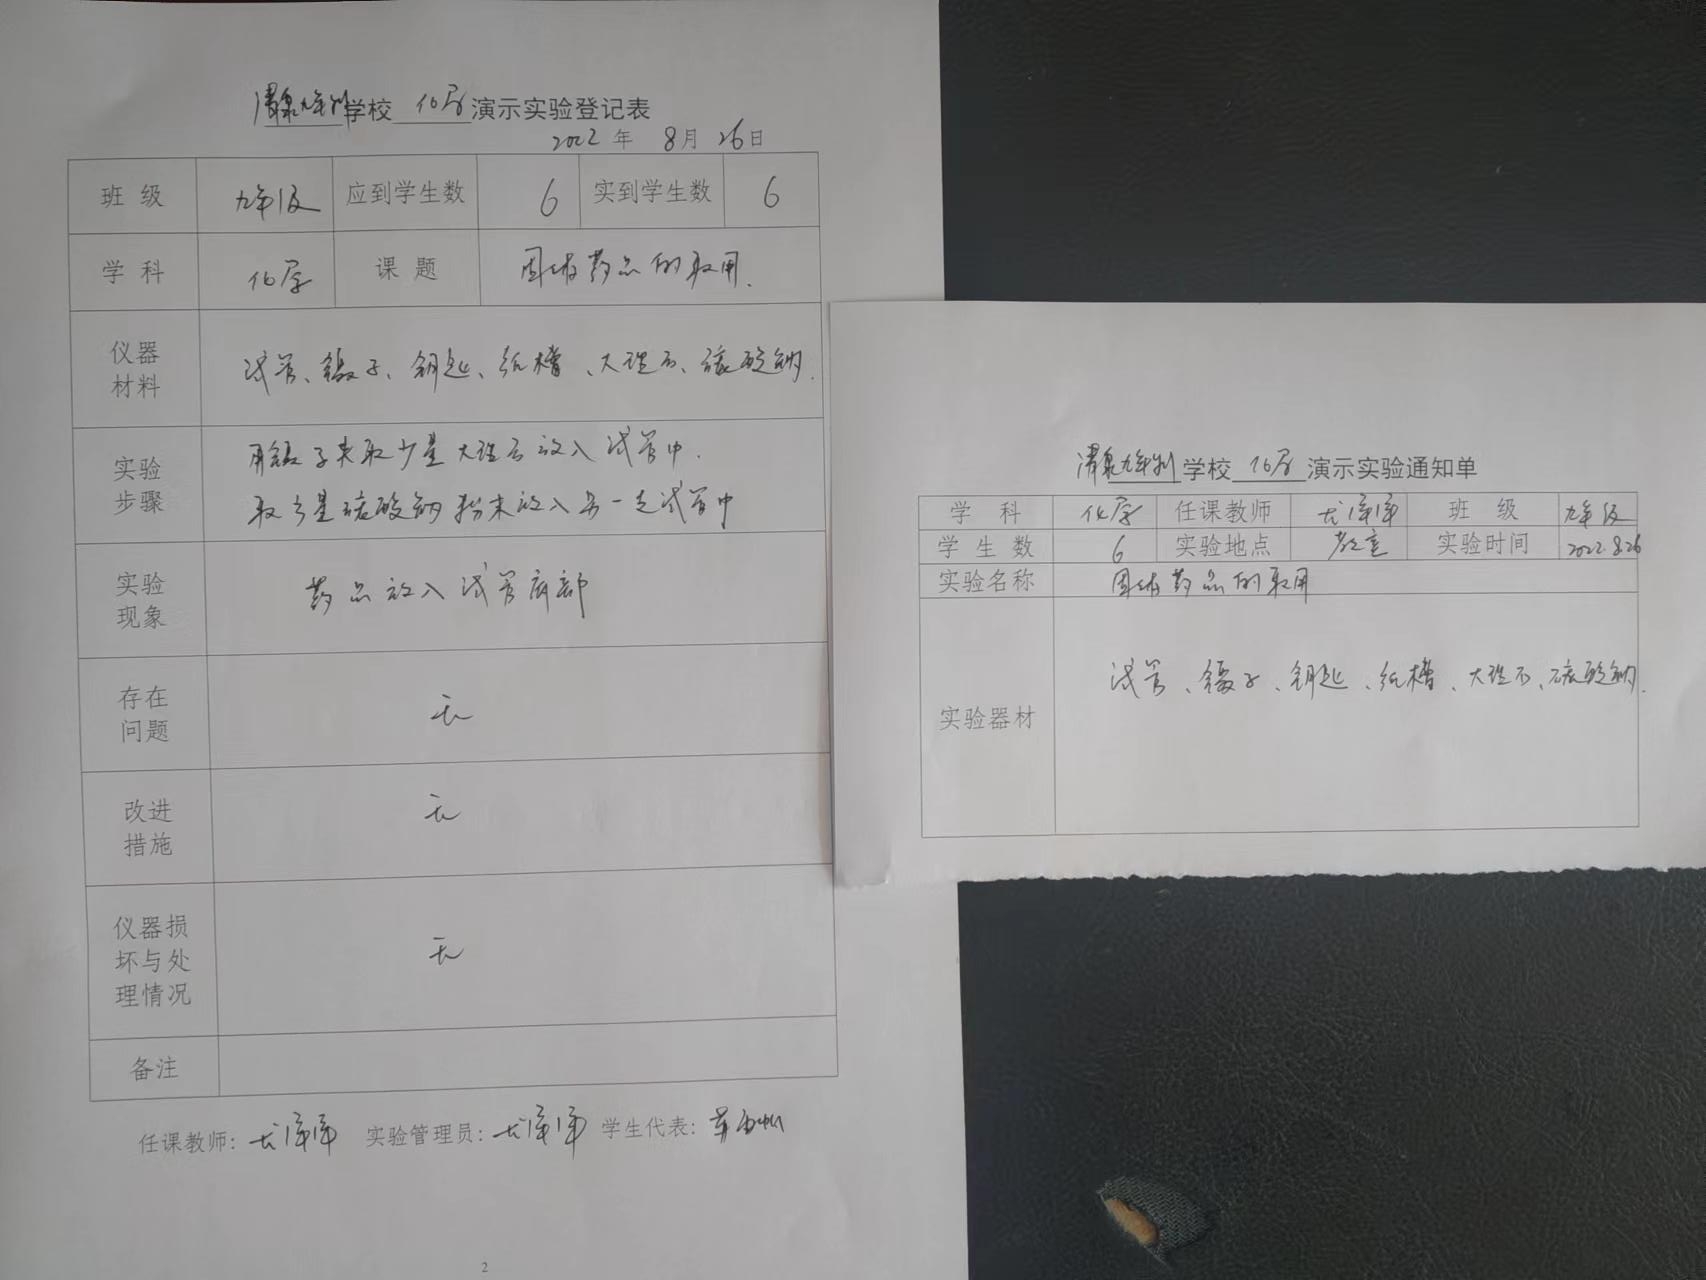 清泉九年制学校 化学 演示实验登记表
2022年 8月 26日
班 级 九年级 应到学生数 6 实到学生数 6
学 科 化学 课 题 固体药品的取用.
仪器
材料
试管、镊子、钥匙、纸槽、大理石、碳酸钠.
实验
步骤
用镊子夹取少量大理石放入试管中.
取少量碳酸钠粉末放入另一支试管中
实验
现象
药品放入试管底部
存在
问题
无
改进
措施
无
仪器损
坏与处
理情况
无
备注
任课教师: 实验管理员: 学生代表:
2
清泉九年制学校 化学 演示实验通知单
学 科 化学 任课教师 班 级 九年级
学 生 数 6 实验地点 教室 实验时间 2022.8.26
实验名称 固体药品的取用
实验器材
试管、镊子、钥匙、纸槽、大理石、碳酸钠.